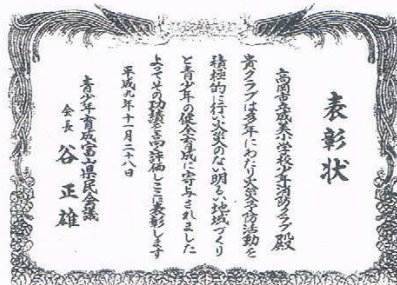 表彰状
高岡市立成美小学校少年消防クラブ殿
貴クラブは多年にわたり火災予防活動を
積極的に行い火災のない明るい地域づくり
と青少年の健全育成に寄与されました
よってその功績を高く評価しここに表彰します
平成九年十一月二十八日
青少年育成富山県民会議
会長 谷正雄